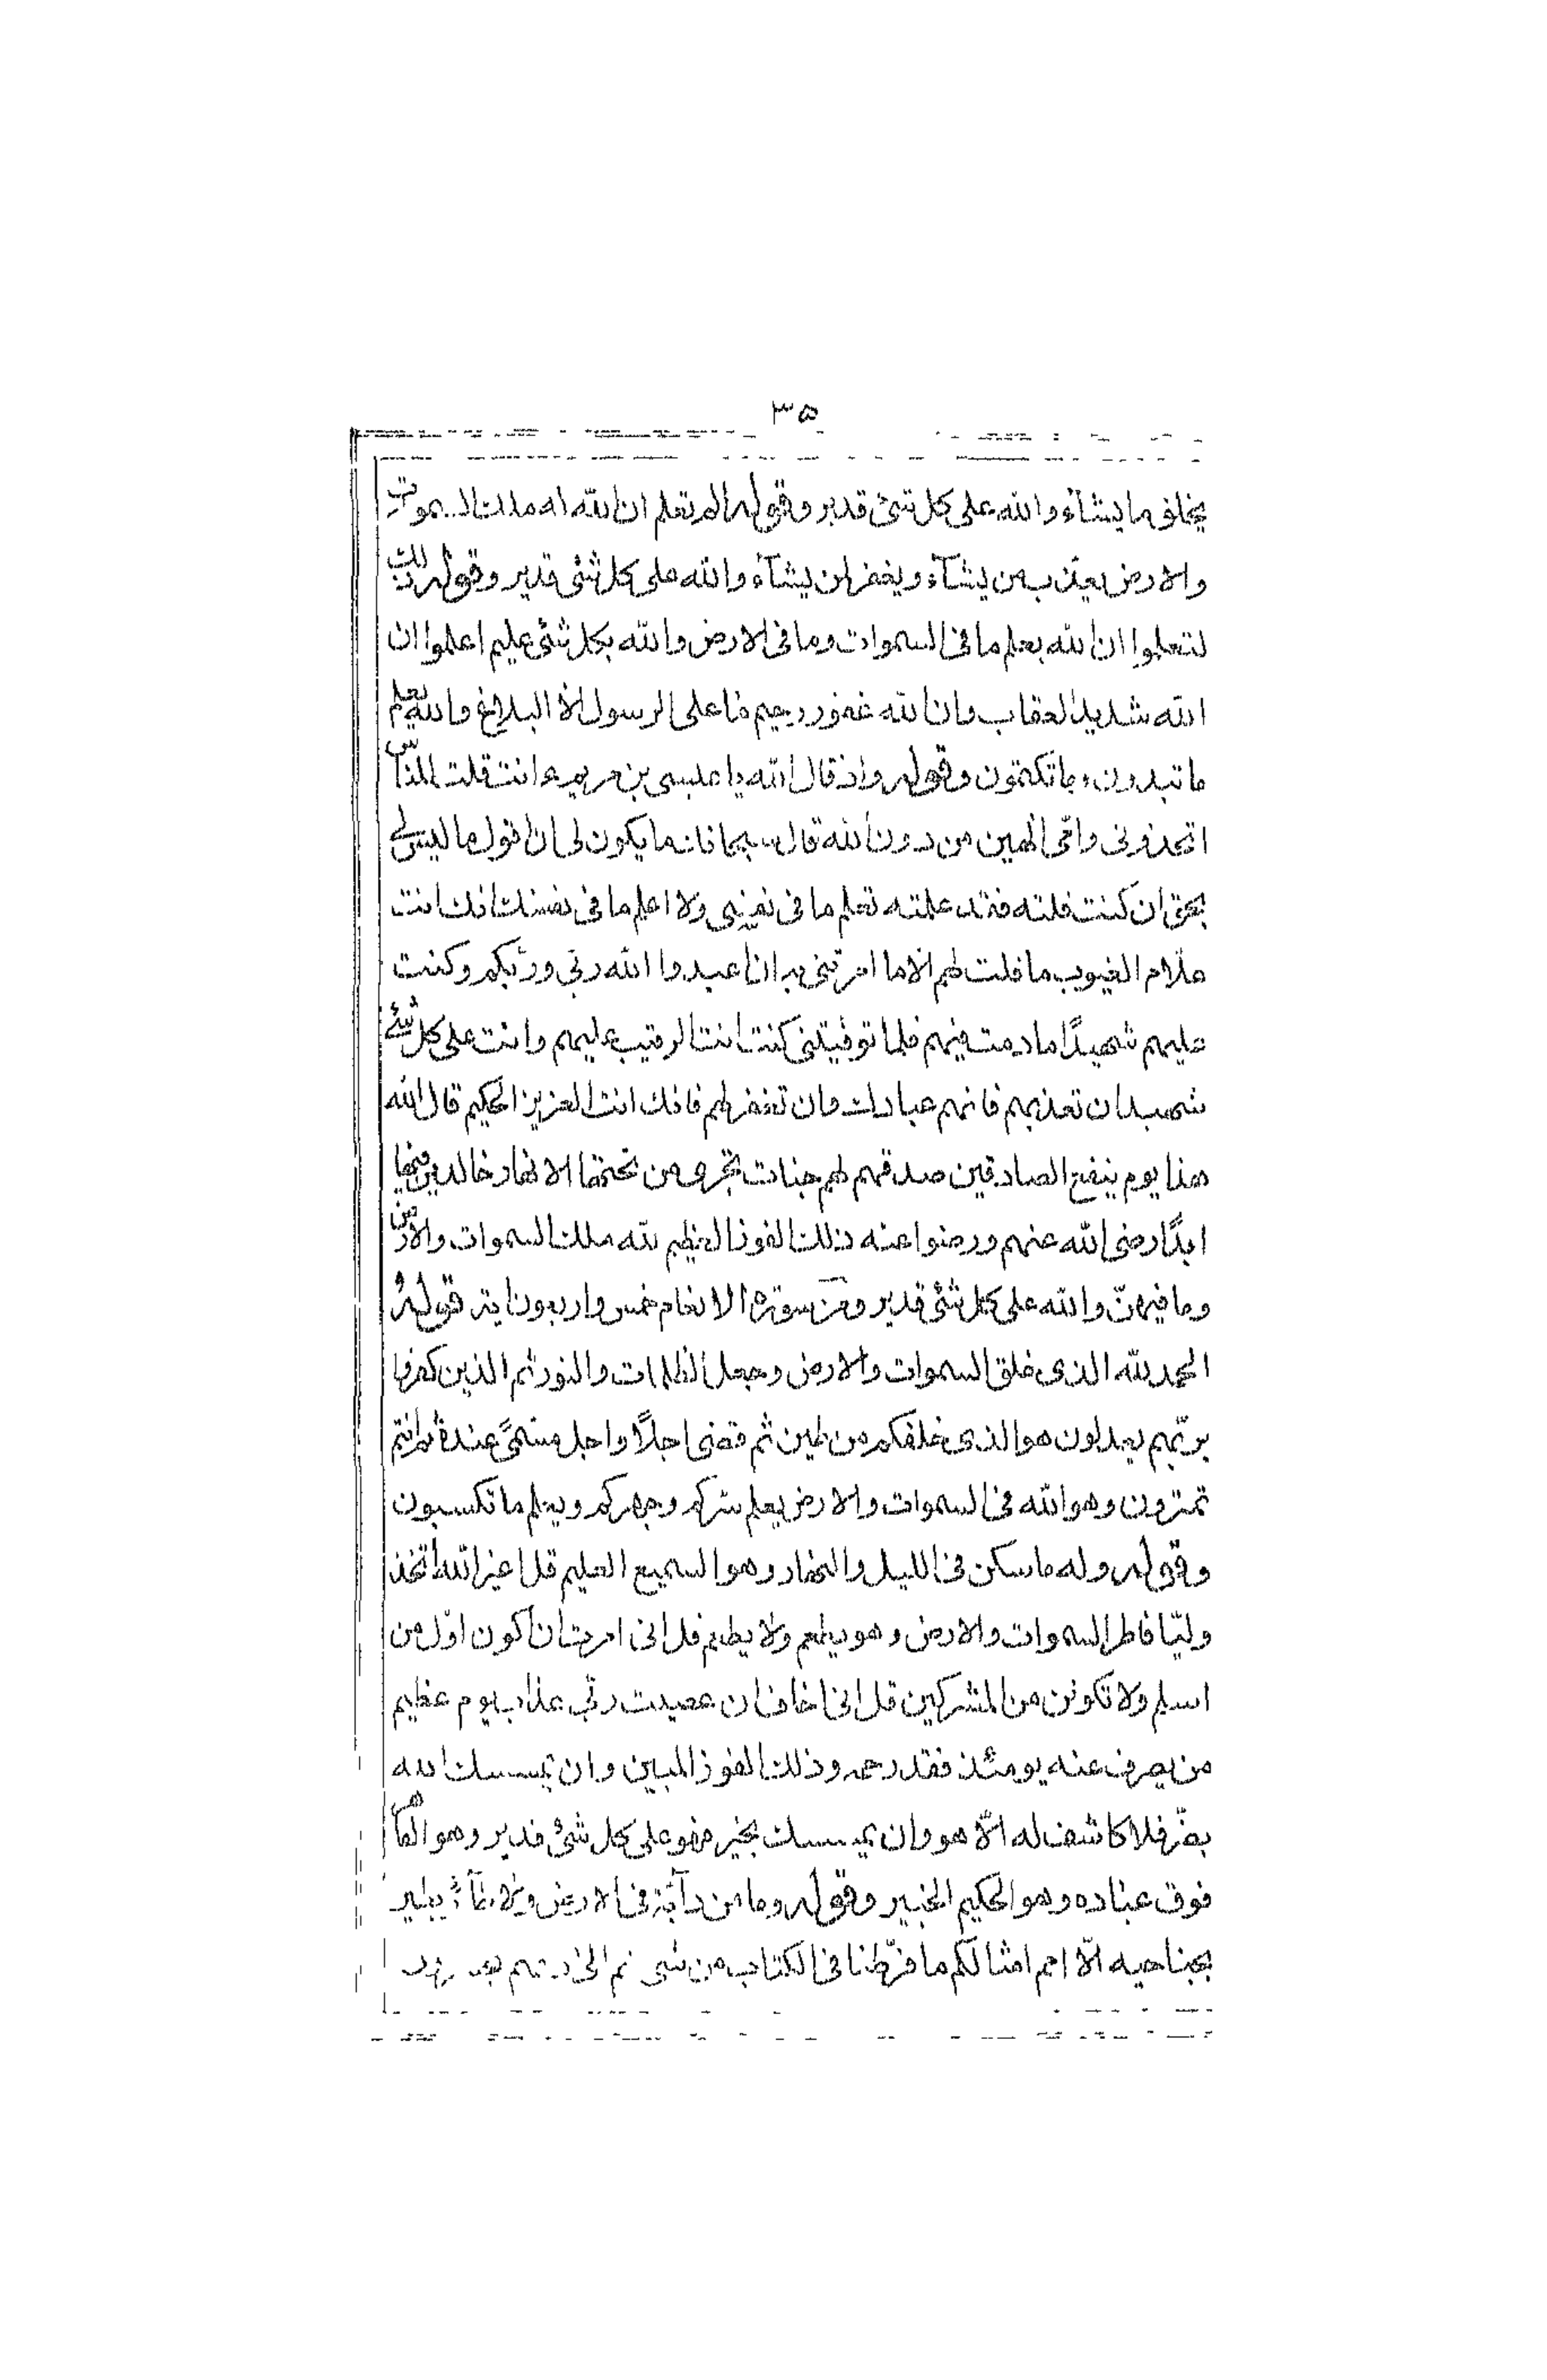 ٣٥
يخلق ما يشآء والله على كل شئ قدير وقوله الم تعلم ان الله له ملك السموات
والارض يعذب من يشآء ويغفر لمن يشآء والله على كل شئ قدير وقوله ذلك
لتعلموا ان الله يعلم ما فى السموات وما فى الارض وان الله بكل شئ عليم اعلموا ان
الله شديد العقاب وان الله غفور رحيم ما على الرسول الا البلاغ والله يعلم
ما تبدون وما تكتمون وقوله واذ قال الله يا عيسى بن مريم ءانت قلت للناس
اتخذونى وامّى الهين من دون الله قال سبحانك ما يكون لى ان اقول ما ليس لى
بحق ان كنت قلته فقد علمته تعلم ما فى نفسى ولا اعلم ما فى نفسك انك انت
علّام الغيوب ما قلت لهم الا ما امرتنى به ان اعبدوا الله ربّى وربّكم وكنت
عليهم شهيدًا ما دمت فيهم فلما توفيتنى كنت انت الرقيب عليهم وانت على كل شئ
شهيد ان تعذبهم فانهم عبادك وان تغفر لهم فانك انت العزيز الحكيم قال الله
هذا يوم ينفع الصادقين صدقهم لهم جنات تجرى من تحتها الانهار خالدين فيها
ابدًا رضى الله عنهم ورضوا عنه ذلك الفوز العظيم لله ملك السموات والارض
وما فيهنّ والله على كل شئ قدير ومن سورة الانعام خمس واربعون اية قوله
الحمد لله الذى خلق السموات والارض وجعل الظلمات والنور ثم الذين كفروا
بربّهم يعدلون هو الذى خلقكم من طين ثم قضى اجلًا واجل مسمًّى عنده ثم انتم
تمترون وهو الله فى السموات والارض يعلم سركم وجهركم ويعلم ما تكسبون
وقوله وله ما سكن فى الليل والنهار وهو السميع العليم قل اغير الله اتخذ
وليًّا فاطر السموات والارض وهو يطعم ولا يطعم قل انى امرت ان اكون اوّل من
اسلم ولا تكونن من المشركين قل انى اخاف ان عصيت ربّى عذاب يوم عظيم
من يصرف عنه يومئذ فقد رحمه وذلك الفوز المبين وان يمسسك الله
بضرّ فلا كاشف له الّا هو وان يمسسك بخير فهو على كل شئ قدير وهو القاهر
فوق عباده وهو الحكيم الخبير وقوله وما من دآبّة فى الارض ولا طآئر يطير
بجناحيه الّا امم امثالكم ما فرّطنا فى الكتاب من شئ ثم الى ربهم